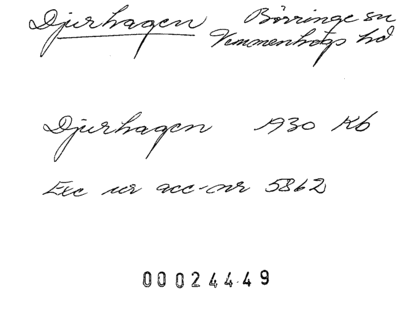 Djurhagen Börringe sn
Vemmenhögs hd
Djurhagen 1930 Kb
Exc ur acc-nr 5862
00024449